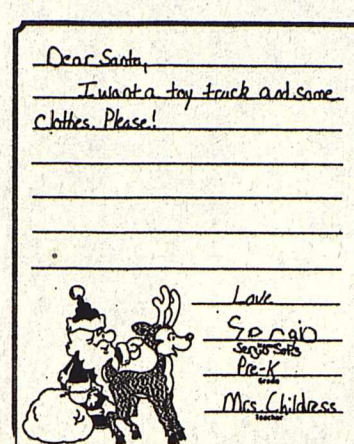 Dear Santa,
I want a toy truck and some
clothes. Please!
Love
Sergio
Name
Pre-K
Grade
Mrs. Childress
Teacher